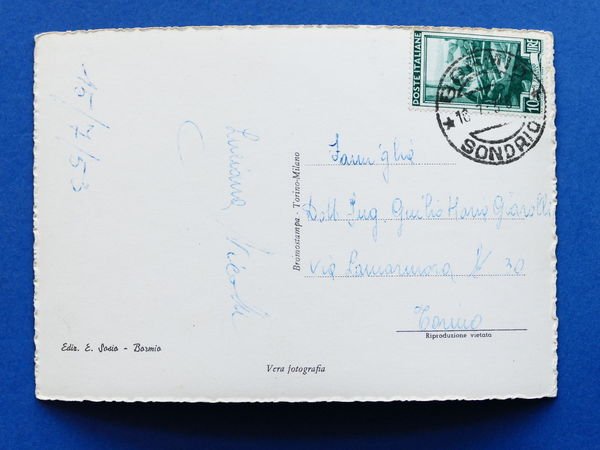 15/7/53
Luciana Nicola
POSTE ITALIANE
LIRE
10
SONDRIO
Famiglia
Dott Ing Guilio Maria Giarolli
Via Lamarmora N 30
Torino
Riproduzione vietata
Bromostampa - Torino-Milano
Ediz. E. Sosio - Bormio
Vera fotografia